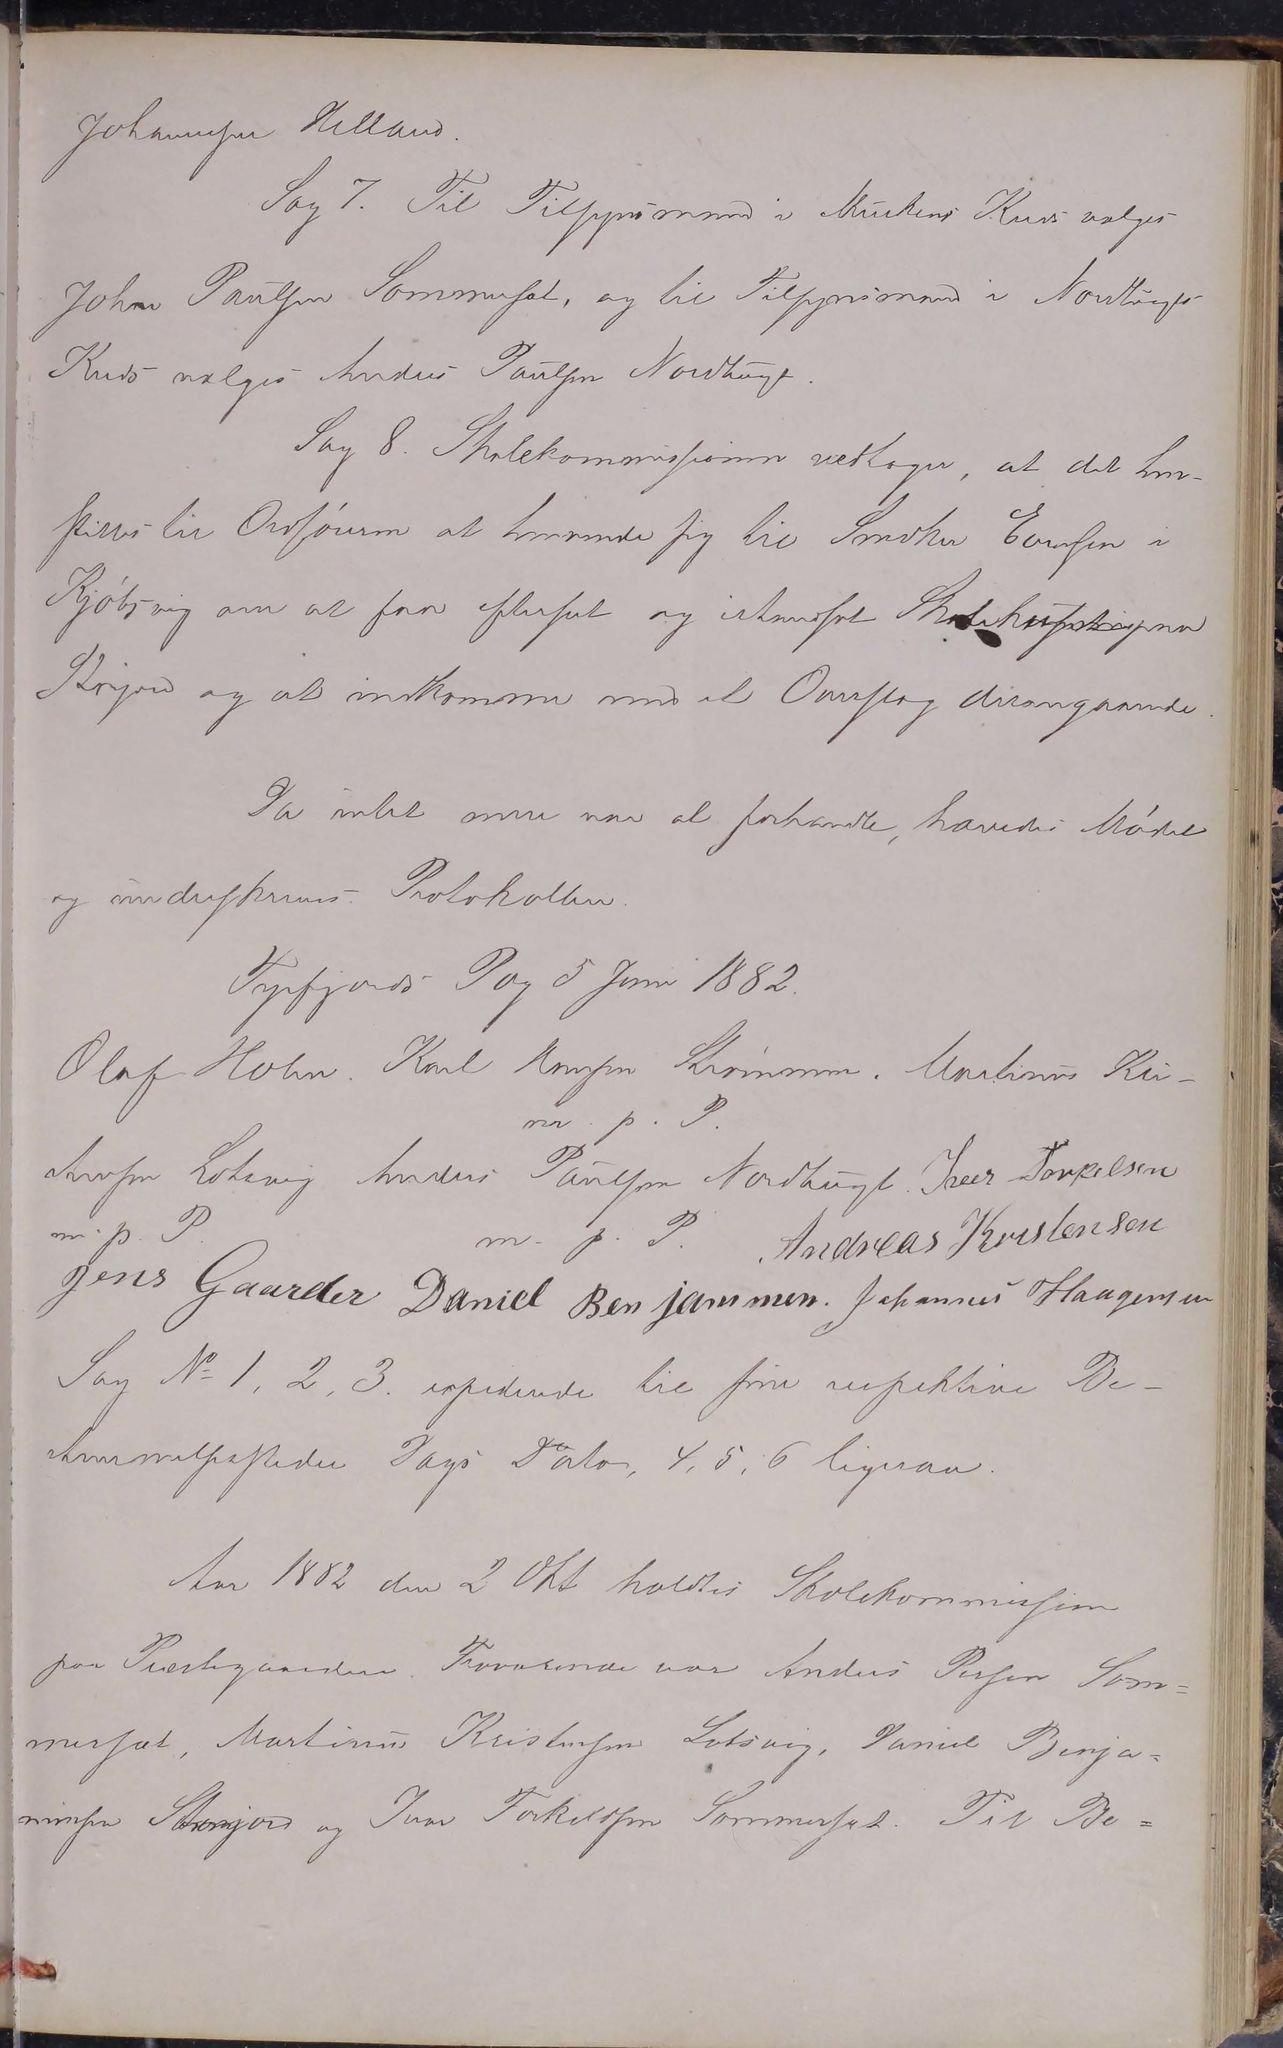 Johannesen Helland.
Sag 7. Til Tilsynsmand i Muskens Kreds vælges
Johan Paulsen Sommerset, og til Tilsynsmand i Nordbugts
Kreds vælges Anders Paulsen Nordbugt.
Sag 8. Skolekommissionen vedtager, at det hen-
stilles til Ordføreren at henvende sig til Snedker Evensen i
Kjøbsvig om at faa efterset og istandsat
Storjord og at indkomme med et Overslag desangaaende.
Da intet mere var at forhandle, hævedes Mødet
og underskreves Protokollen.
Tysfjords Pgd 5 Juni 1882.
Olaf Holm. Karl Hansen Strømmen. Martinus Kri-
m. p. P.
stensen Lotsvig Anders Paulsen Nordbugt. Iver Torkelsen
m. p. P. m. p. P. Andreas Kristensen
Jens Gaarder Daniel Benjammen. Johannes Haagensen
Sag No 1, 2, 3. expederede til sine respektive Be-
stemmelsessteder Dags Dato, 4, 5, 6 ligesaa.
Aar 1882 den 2 Okt holdtes Skolekommission
paa Præstegaarden. Fraværende var Anders Persen Som=
merset, Martinus Kristensen Lotsvig, Daniel Benja=
minsen Storjord og Iver Torkeldsen Sommerset. Til Be=